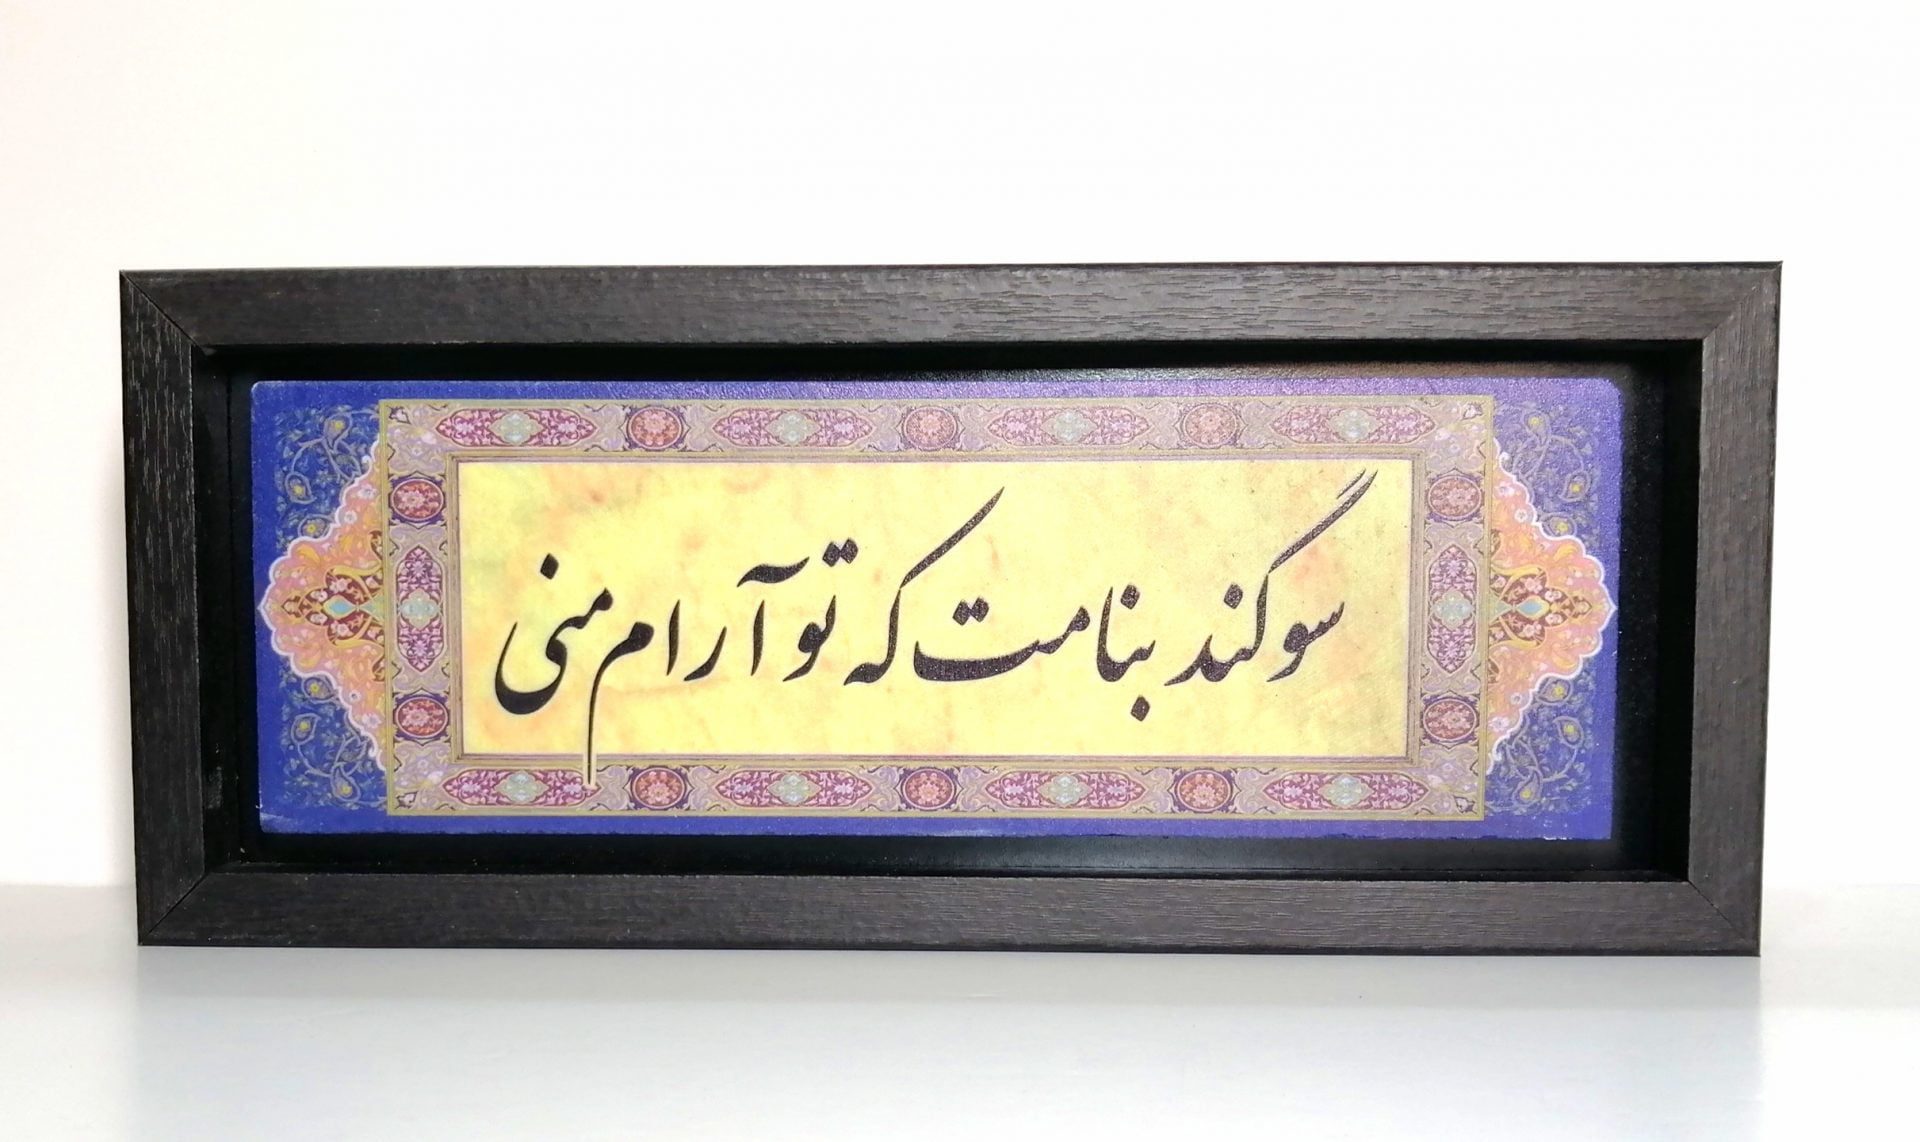 سوگند بنامت که تو آرام منی